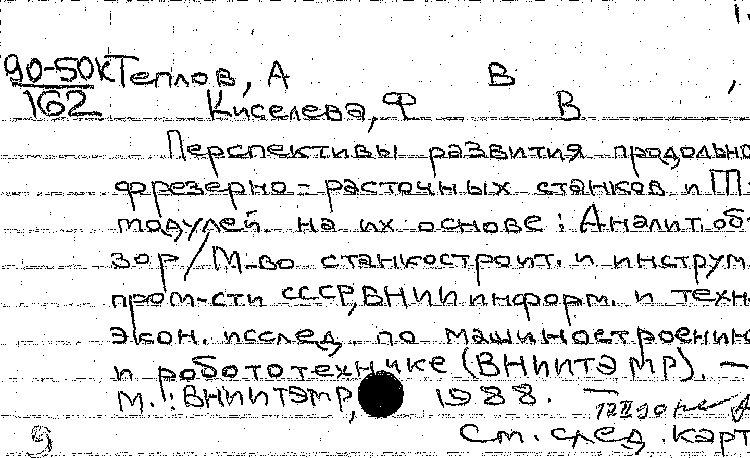 90-50к Теплов, А В ,
162 Киселева, Ф В
Перспективы развития продольно
фрезерно-расточных станков и ГП
модулей на их основе: Аналит. об
зор/М-во станкостроит. и инструм
пром-сти СССР, ВНИИ информ. и техн
экон. исслед. по машиностроению
и робототехнике (ВНИИТЭМР). —
М.: ВНИИТЭМР, 1988. —
См. след. карт
9